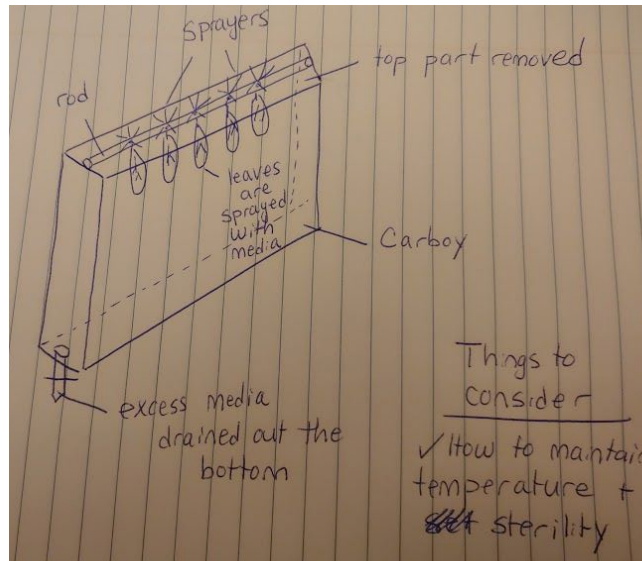 Sprayers
rod
top part removed
leaves
are
sprayed
with
media
Carboy
excess media
drained out the
bottom
Things to
consider
✓How to maintai
temperature +
sterility